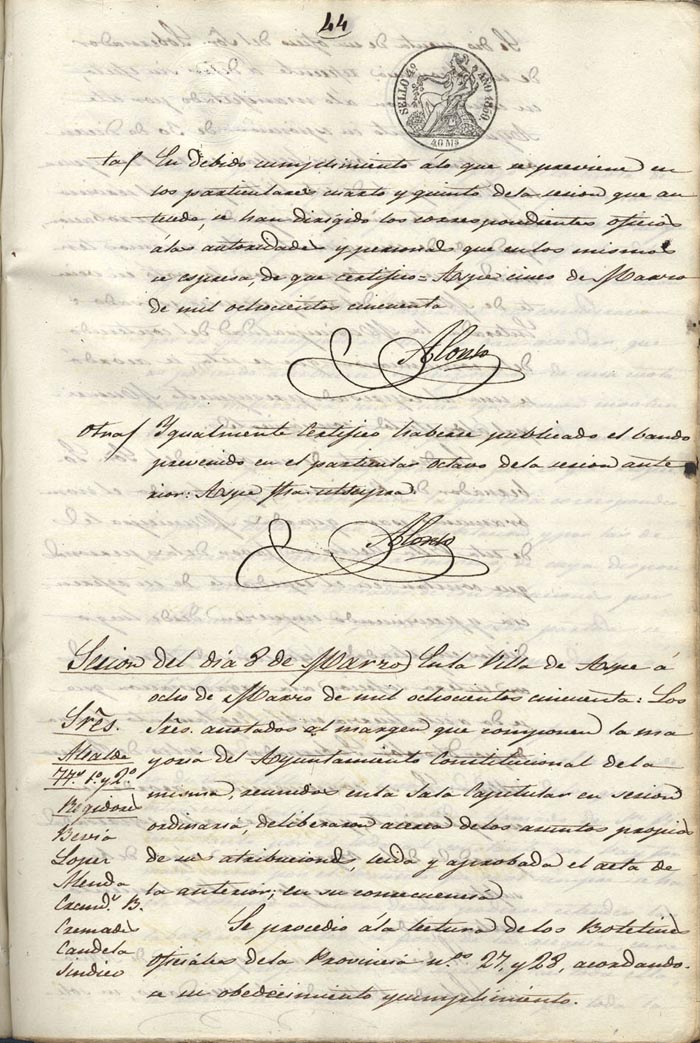 44
SELLO 4º AÑO 1850.
40 Ms
En debido cumplimiento á lo que se previene en
los particulares cuarto y quinto de la sesion que an-
tecede, se han dirigido los correspondientes oficios
á las autoridades y personas que en los mismos
se espresa, de que certifico = Aspe cinco de Marzo
de mil ochocientos cincuenta
Alonso
Otra Ygualmente Certifico haberse publicado el bando
prevenido en el particular octavo de la sesion ante-
rior: Aspe fha ut supra
Alonso
Sesion del dia 8 de Marzo) En la Villa de Aspe á
ocho de Marzo de mil ochocientos cincuenta: Los
Sres. anotados al margen que componen la ma
yoria del Ayuntamiento Constitucional de la
misma, reunidos en la Sala Capitular en sesion
ordinaria, deliberaron acerca de los asuntos propios
de su atribucion, leida y aprobada el acta de
la anterior; en su consecuencia
Se procedio á la lectura de los Boletines
oficiales de la Provincia n.os 27, y 28, acordando-
se su obedecimiento y cumplimiento.
Sres.
Alcalde
TT.s 1º y 2º
Regidores
Beviá
Lopez
Cremades
Candela
Sindico